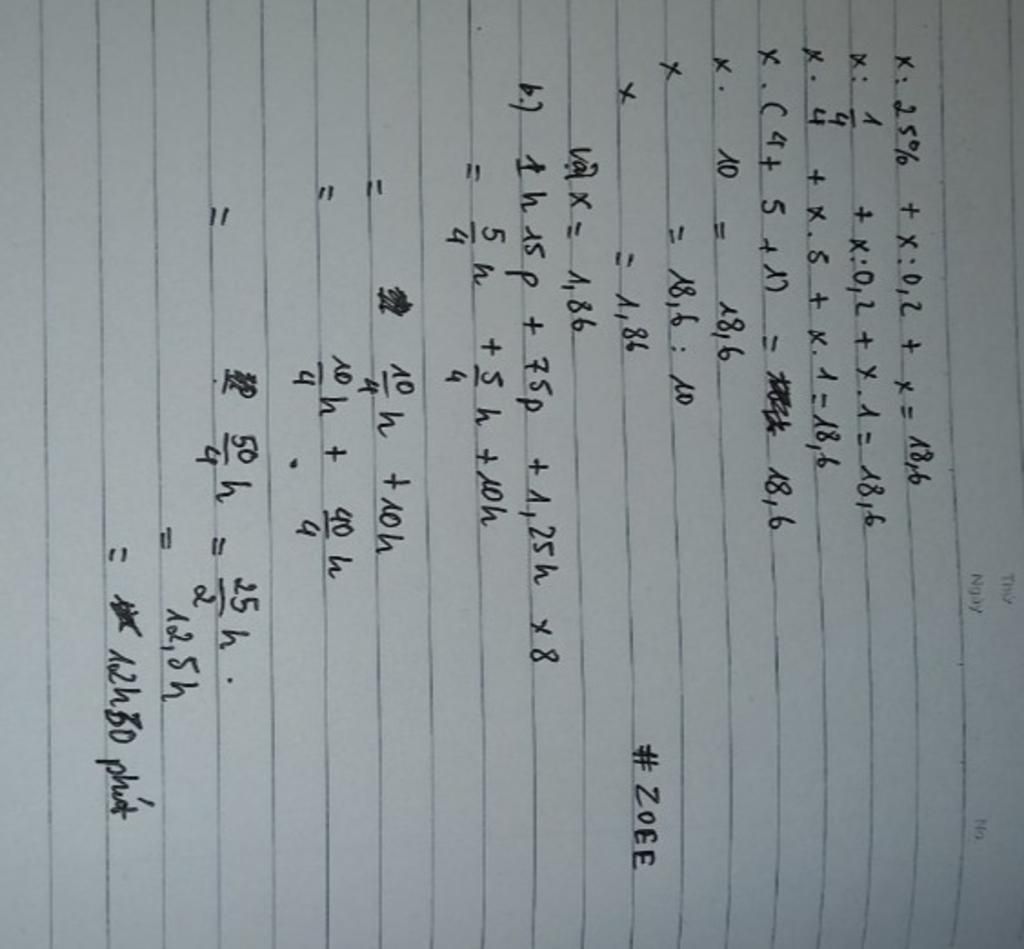 Thứ
Ngày
No.
x: 25% + x:0,2 + x = 18,6
x: 1/4 + x:0,2 + x.1 = 18,6
x. 4 + x.5 + x.1 = 18,6
x. (4 + 5 + 1) = 18,6
x. 10 = 18,6
x = 18,6 : 10
x = 1,86
# ZOEE
Vậy x = 1,86
b.) 1h15p + 75p + 1,25h x 8
= 5/4 h + 5/4 h + 10h
= 10/4 h + 10h
= 10/4 h + 40/4 h
= 50/4 h = 25/2 h.
= 12,5h
= 12h30 phút